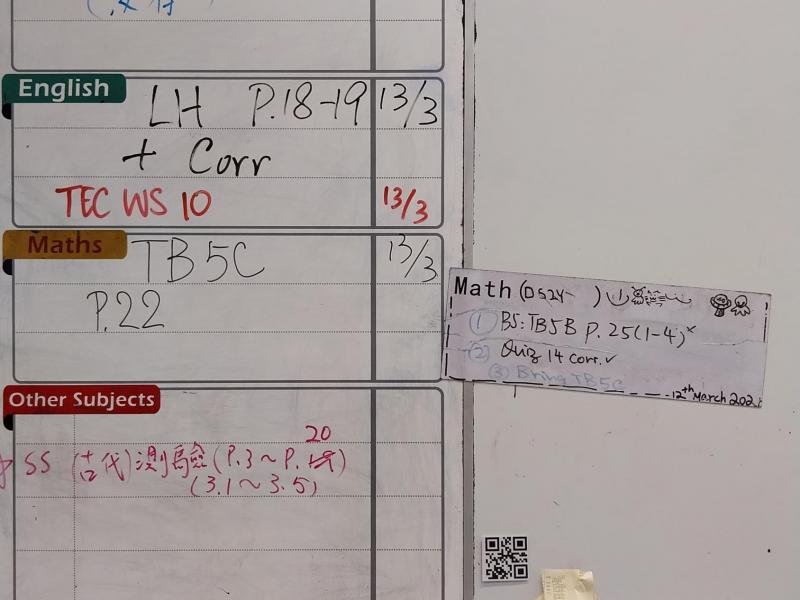 English
LH P.18-19 13/3
+ Corr
TEC WS 10 13/3
Maths
TB 5C 13/3
P.22
Math (DS24- )
① BS: TB5B P. 25(1-4)
② Quiz 14 corr. ✓
③ Bring TB5C
12th March
Other Subjects
20
SS (古代)測驗(P.3~P.)
(3.1~3.5)